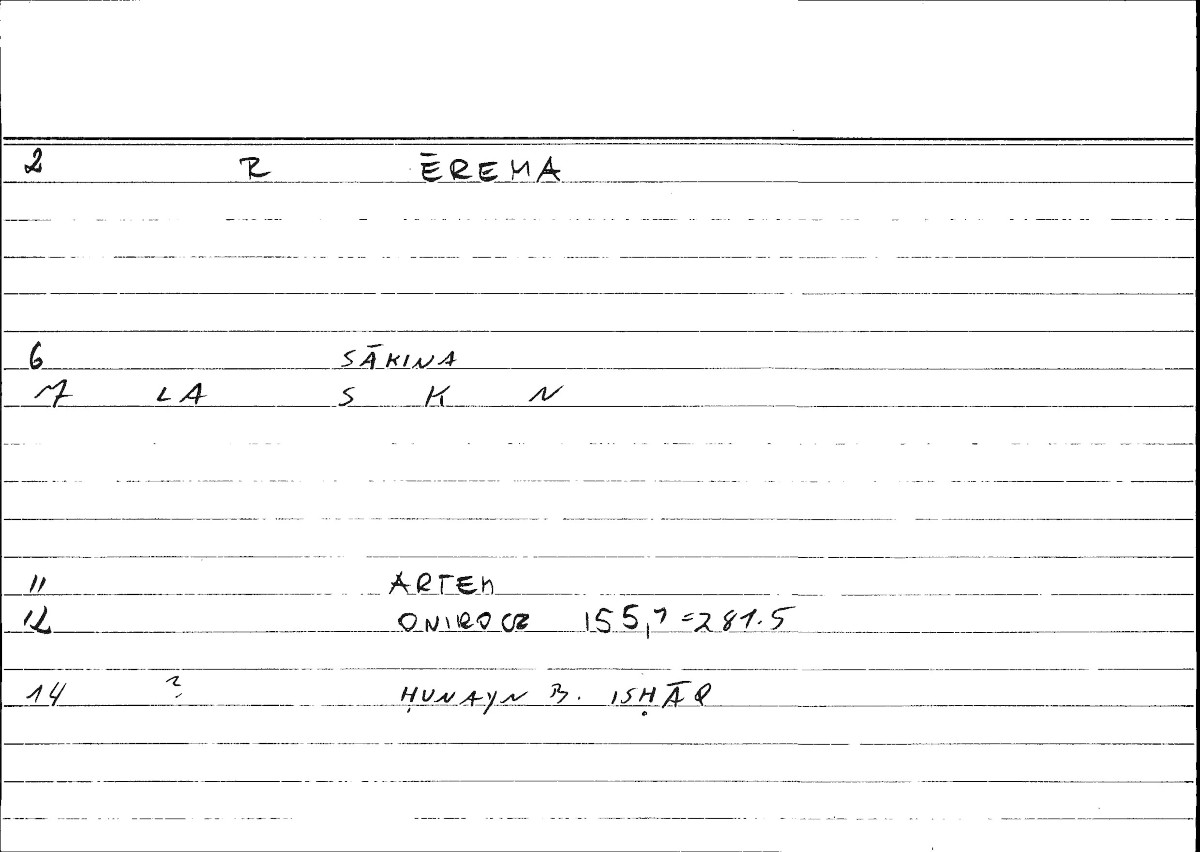 2 R ĒREMA
6 SĀKINA
7 LA S K N
11 ARTEM
12 ONIROCR 155,7=281.5
14 ? ḤUNAYN B. ISḤĀQ